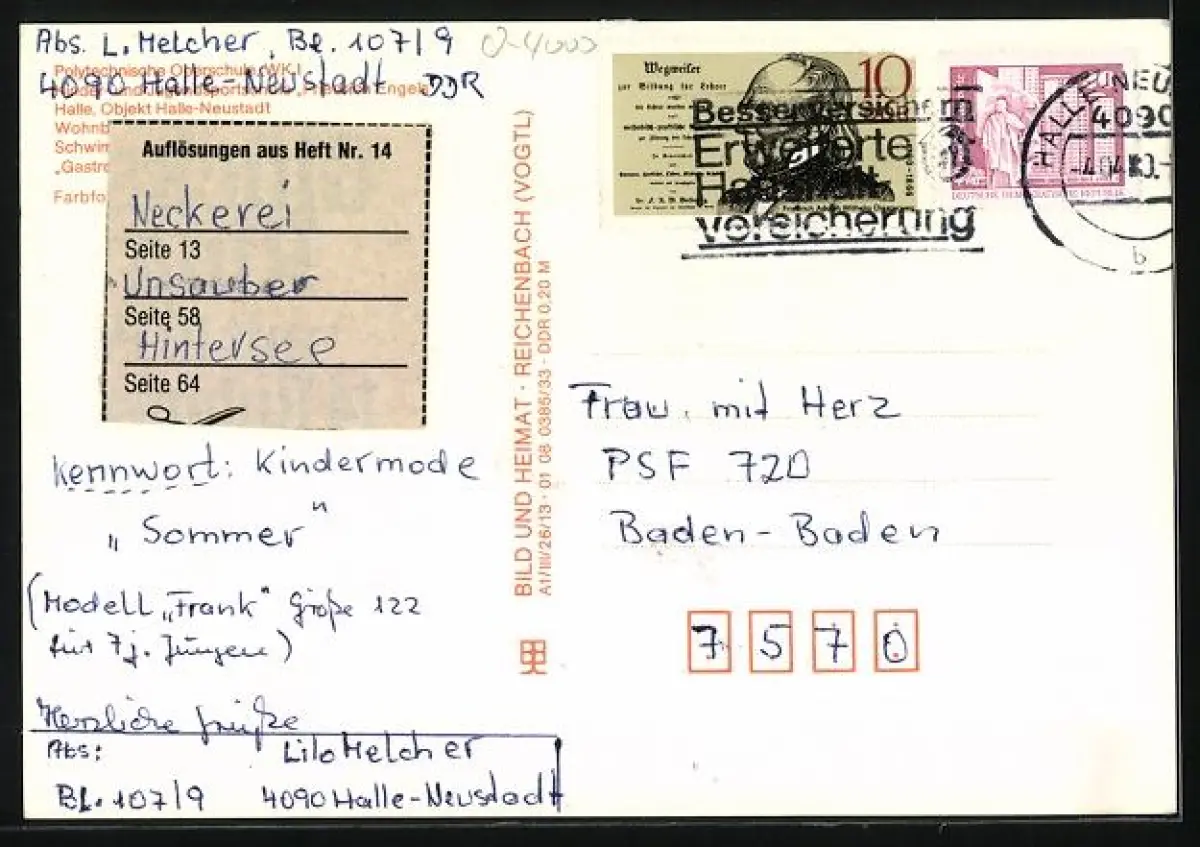 Abs. L. Melcher, Bl. 107/9
4090 Halle-Neustadt DDR
0-4000
Polytechnische Oberschule (WK I
Halle, Objekt Halle-Neustadt
Wohnb
Schwim
„Gastro
Farbfo
Auflösungen aus Heft Nr. 14
Neckerei
Seite 13
Unsauber
Seite 58
Hintersee
Seite 64
Kennwort: Kindermode
„Sommer"
(Modell „Frank" Größe 122
für 7j. Jungen)
Herzliche Grüße
Abs: Lilo Melcher
Bl. 107/9 4090 Halle-Neustadt
BILD UND HEIMAT · REICHENBACH (VOGTL)
A1/III/26/13 · 01 08 0385/33 · DDR 0,20 M
Wegweiser
zur Bildung für Lehrer
10
Besser versichern
Erweiterte
Haushalt-
versicherung
DEUTSCHE DEMOKRATISCHE REPUBLIK
HALLE-NEU
4090
b
Frau mit Herz
PSF 720
Baden-Baden
7570